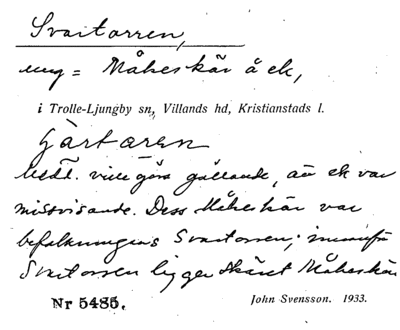 Svartorren,
ung = Måkeskär å ek,
i Trolle-Ljungby sn, Villands hd, Kristianstads l.
Medd. ville göra gällande, att ek var
missvisande. Dess Måkeskär var
befolkningens Svartorren; innanför
Svartorren ligger skäret Måkeskär
Nr 5485.
John Svensson. 1933.